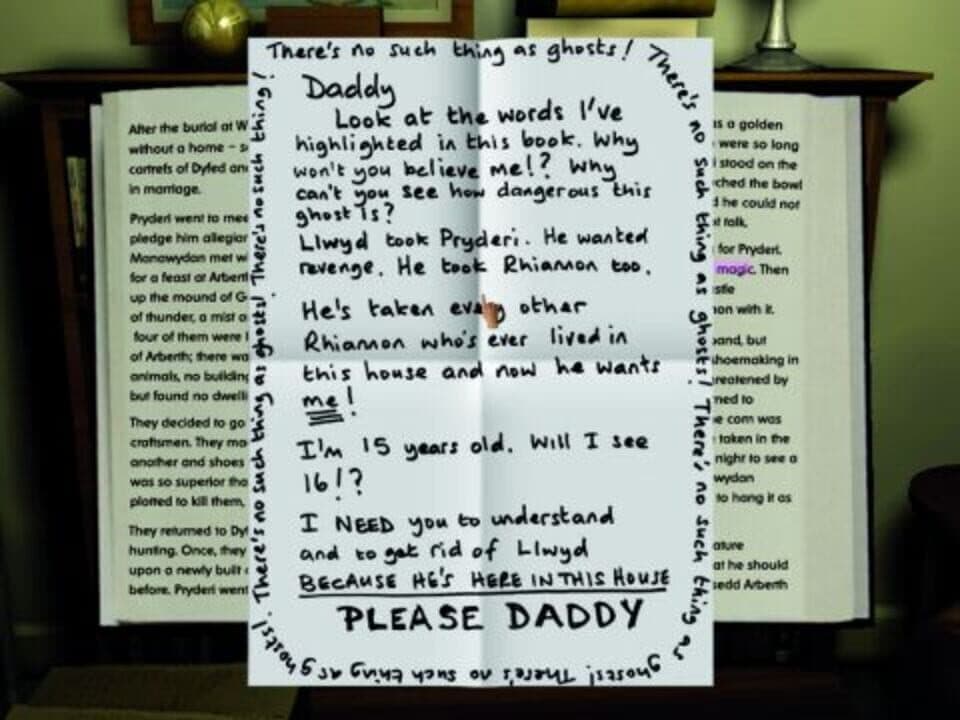 There's no such thing as ghosts! There's no such thing as ghosts! There's no such thing as ghosts! There's no such thing as ghosts! There's no such thing as ghosts! There's no such thing!
Daddy
Look at the words I've
highlighted in this book. Why
won't you believe me!? Why
can't you see how dangerous this
ghost is?
Llwyd took Pryderi. He wanted
revenge. He took Rhiannon too.
He's taken every other
Rhiannon who's ever lived in
this house and now he wants
me!
I'm 15 years old. Will I see
16!?
I NEED you to understand
and to get rid of Llwyd
BECAUSE HE'S HERE IN THIS HOUSE
PLEASE DADDY
After the burial at W
without a home - s
cantrefs of Dyfed an
in marriage.
Pryderi went to mee
pledge him allegian
Manawydan met wi
for a feast at Arbert
up the mound of G
of thunder, a mist a
four of them were l
of Arberth; there wa
animals, no building
but found no dwelli
They decided to go
craftsmen. They ma
another and shoes
was so superior tha
plotted to kill them,
They returned to Dyf
hunting. Once, they
upon a newly built
before. Pryderi went
s a golden
were so long
stood on the
ched the bowl
he could not
t talk.
for Pryderi.
magic. Then
stle
on with it.
and, but
shoemaking in
reatened by
ned to
e corn was
taken in the
night to see a
wydan
to hang it as
ature
at he should
sedd Arberth